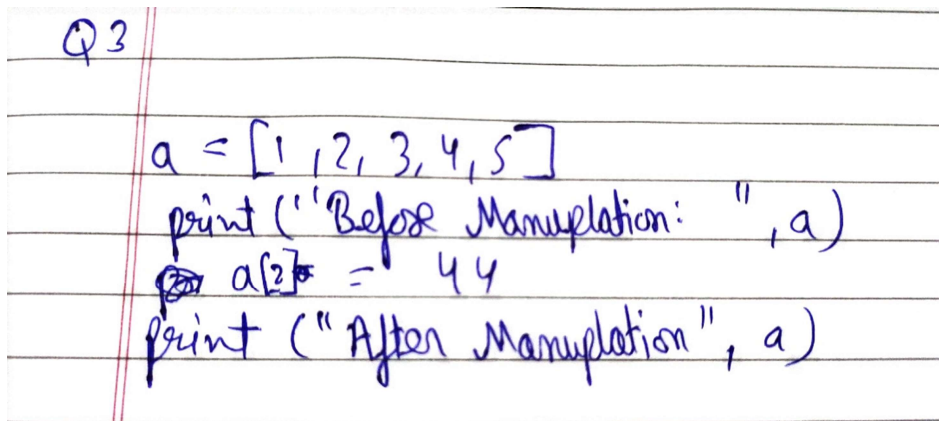 Q3
a = [1, 2, 3, 4, 5]
print ("Before Manuplation: ", a)
a[2] = 44
print ("After Manuplation", a)